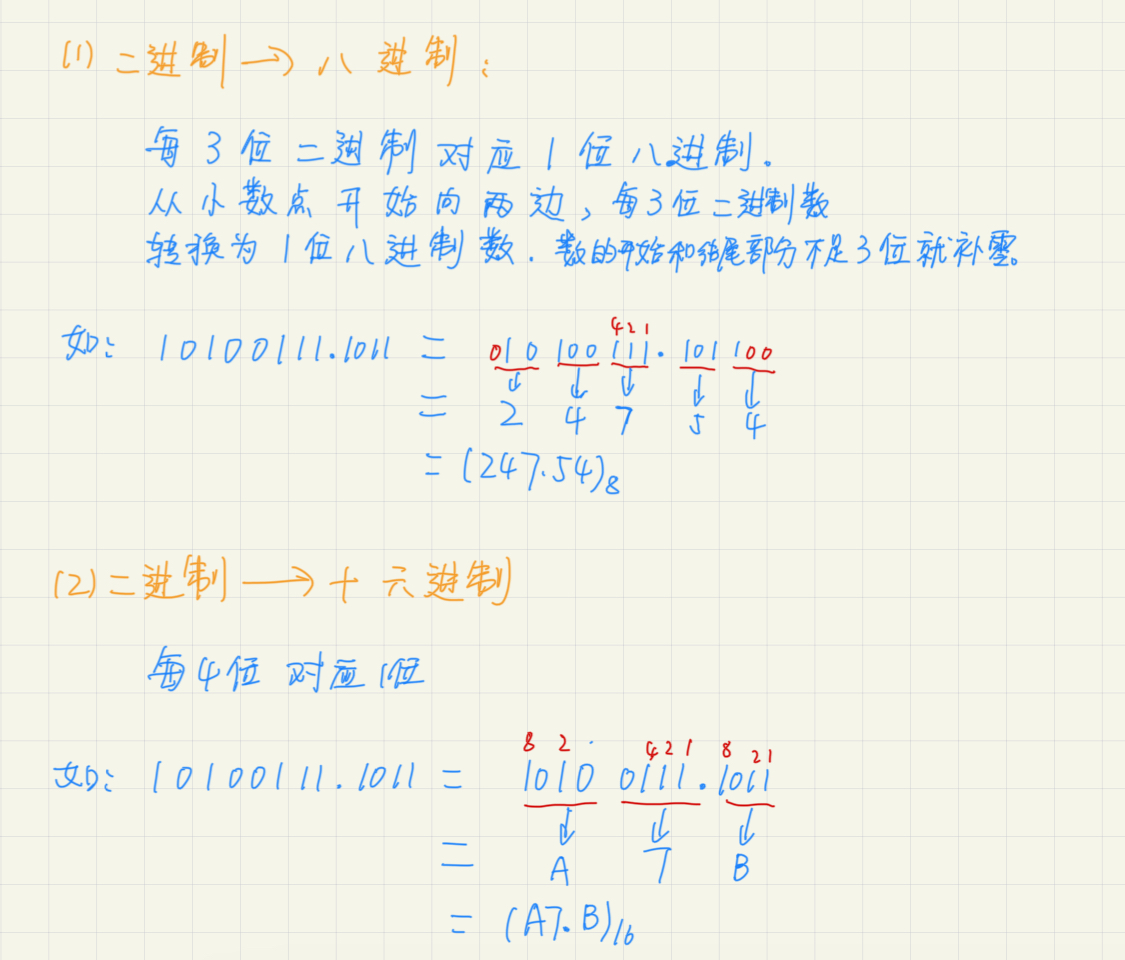 (1) 二进制 → 八进制：
每3位二进制对应1位八进制.
从小数点开始向两边，每3位二进制数
转换为1位八进制数. 数的开始和结尾部分不足3位就补零。
4 2 1
如： 10100111.1011 = 010 100 111 . 101 100
↓ ↓ ↓ ↓ ↓
= 2 4 7 5 4
= (247.54)8
(2) 二进制 → 十六进制
每4位 对应1位
8 2 4 2 1 8 2 1
如： 10100111.1011 = 1010 0111 . 1011
↓ ↓ ↓
= A 7 B
= (A7.B)16